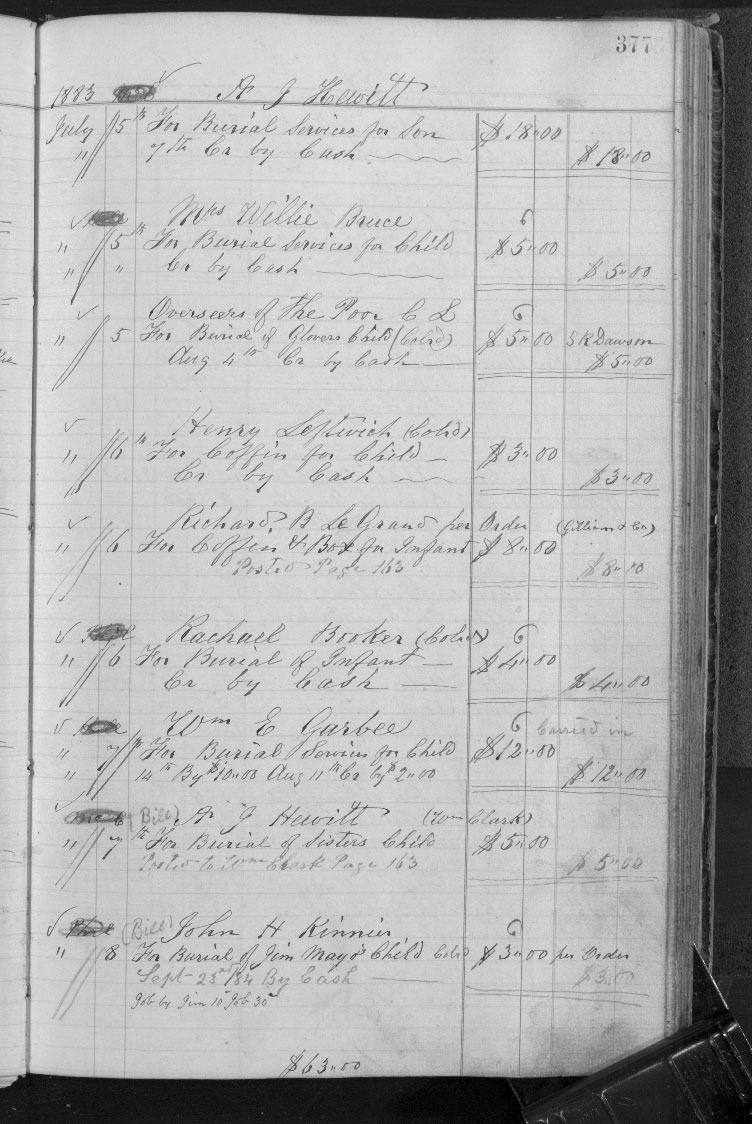 377
1883 A J Hewitt
July 5th For Burial Services for Son $18"00
" 7th Cr by Cash $18"00
Mrs Willie Bruce
" 5th For Burial Services for Child $5"00
" " Cr by Cash $5"00
Overseers of the Poor C L
" 5 For Burial of Glovers Child (Cold) $5"00 S R Dawson
Aug 4th Cr by Cash $5"00
Henry Leftwich (Cold)
" 6th For Coffin for Child $3"00
" Cr by Cash $3"00
Richard B Le Grand per Order (Gilliam & Co)
" 6 For Coffin & Box for Infant $8"00
Posted Page 163 $8"00
Rachael Booker (Cold)
" 6 For Burial of Infant $4"00
Cr by Cash $4"00
Wm E Garbee Carried in
" 7th For Burial Services for Child $12"00
" 14th By $10"00 Aug 11th Cr by $2"00 $12"00
(Bill) A J Hewitt (Wm Clark)
" 7th For Burial of Sisters Child $5"00
Posted to Wm Clark Page 163 $5"00
(Bill) John H Kinnier
" 8 For Burial of Jim Mayo's Child Cold $3"00 per Order
Sept 23rd 84 By Cash $3"00
Job by Jim 10 Job 30
$63"00